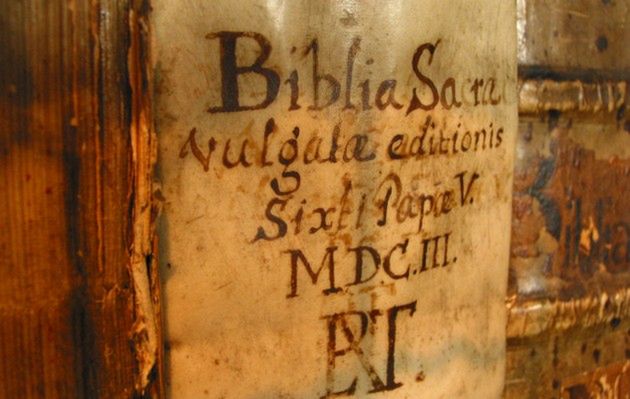 Biblia Sacra
vulgatæ editionis
Sixti Papæ V.
MDC.III.